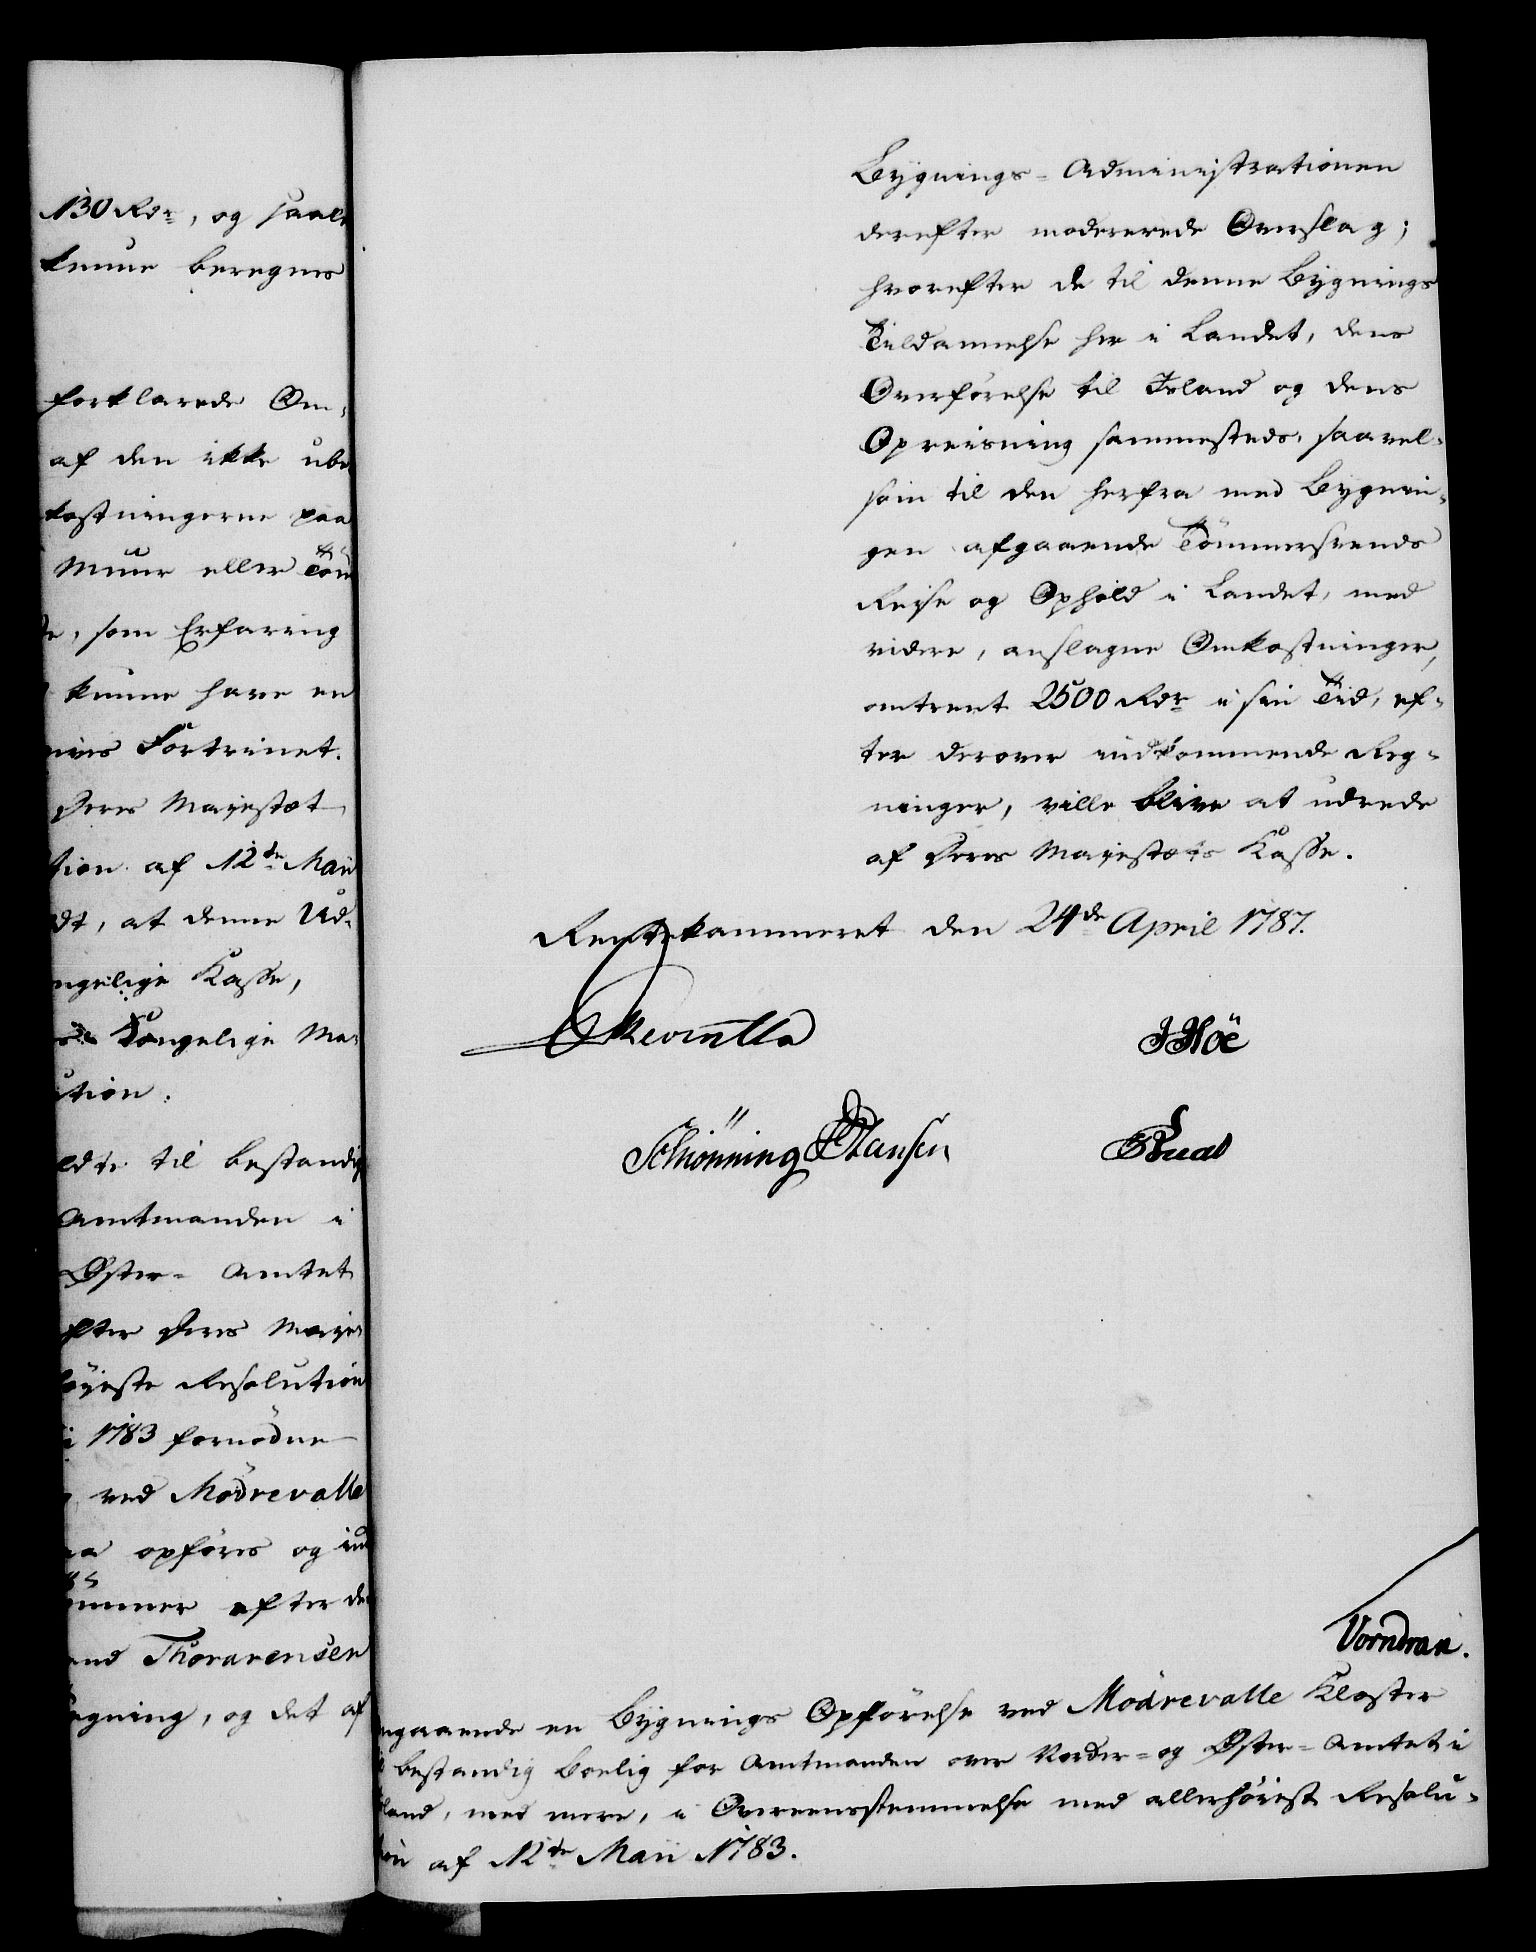 130 Rdr, og saale
kunne beregnes
forklarede Om-
af den ikke ube
kostningerne paa
Muur eller Töm
, som Erfaring
kunne have en
Fortrinet.
Deres Majestæt
tion af 12te Maii
dt, at denne Ud-
ngelige Kasse,
Kongelige Ma-
ution.
ldte til bestandig
Amtmanden i
Øster- Amtet
fter Deres Maje-
öyeste Resolution
i 1783 fornödne
ved Mödrevalle
opföres og ind
ömmer efter de
and Thorarensen
egning, og det af
Bygnings-Administrationen
derefter modererede Overslag;
hvorefter de til denne Bygnings
Tildannelse her i Landet, dens
Overförelse til Island og dens
Opreisning sammesteds, saavel-
som til den herfra med Bygnin-
gen afgaaende Tömmersvends
Reise og Ophold i Landet, med
videre, anslagne Omkostninger,
omtrent 2500 Rdr i sin Tid, ef-
ter derover indkommende Reg-
ninger, ville blive at udrede
af Deres Majestæts Kasse.
Rentekammeret den 24de April 1787.
CReventlo
JHöe
Schiönning JHansen
Vorndran.
ngaaende en Bygnings Opförelse ved Mödrevalle Kloster
bestandig Boelig for Amtmanden over Norder- og Øster-Amtet i
land, med mere, i Overeensstemmelse med allerhöiest Resolu-
ion af 12te Maii 1783.